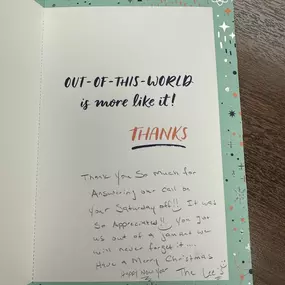 OUT-OF-THIS-WORLD
is more like it!
THANKS
Thank You So Much for
Answering our call on
Your Saturday off!! It was
So Appreciated!! You got
us out of a jam and we
will never forget it...
Have a Merry Christmas
Happy New Year The Lee's